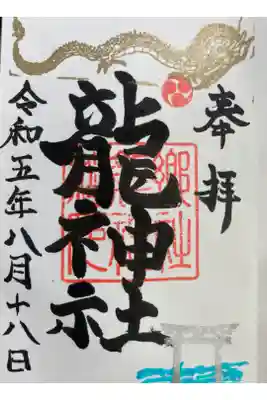 奉拝
龍神社
令和五年八月十八日
郷社